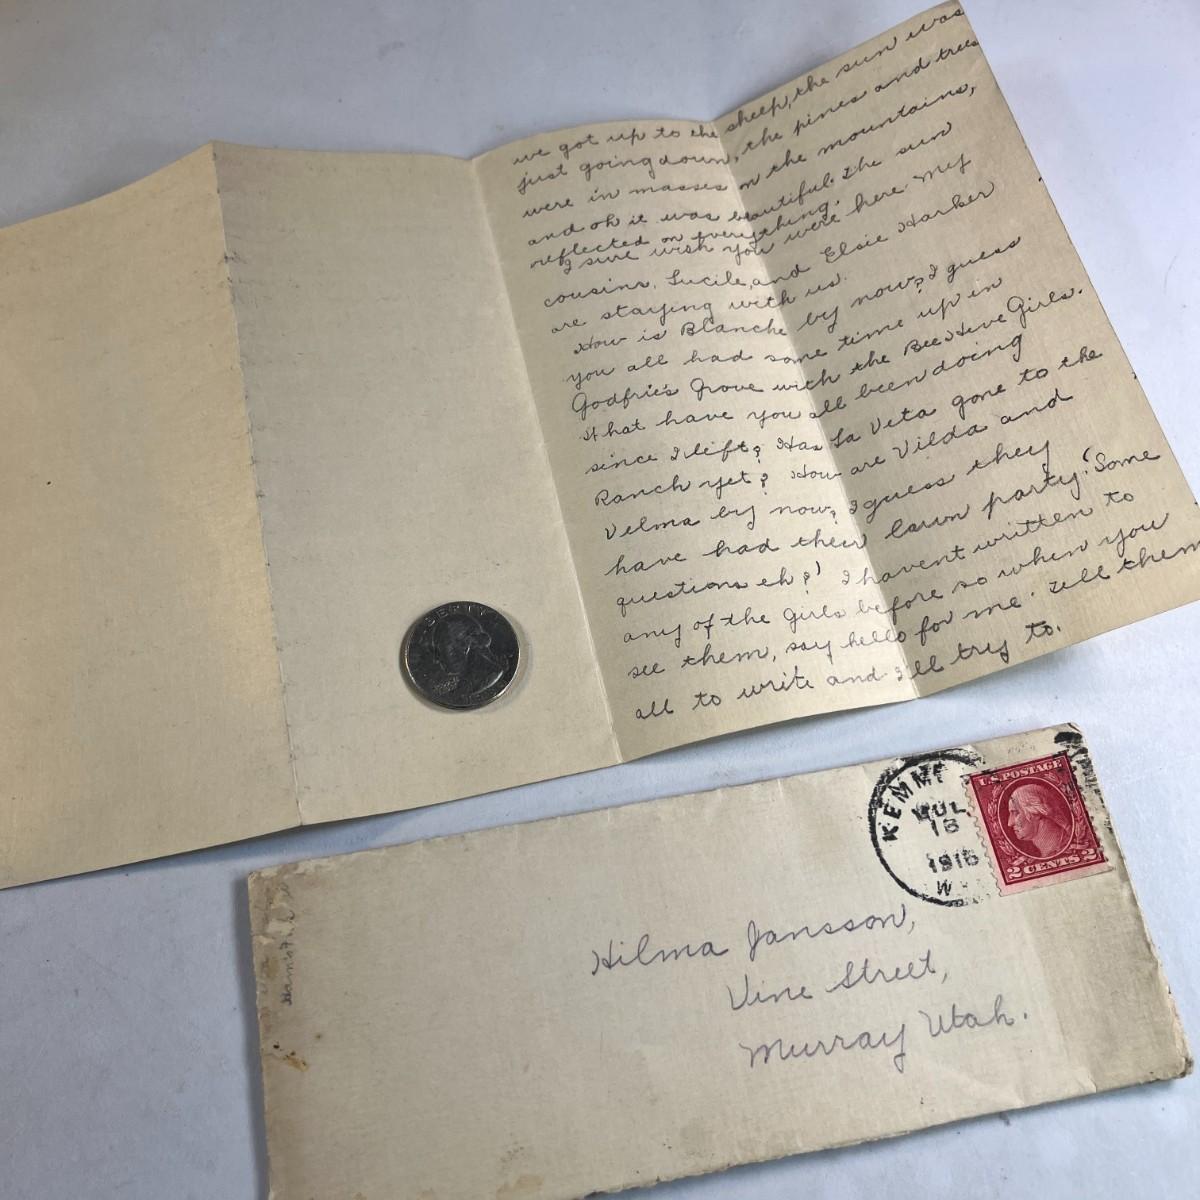 we got up to the sheep, the sun was
just going down, the pines and trees
were in masses on the mountains,
and oh it was beautiful. The sun
reflected on everything.
I sure wish you were here. My
cousins, Lucile, and Elsie Harker
are staying with us.
How is Blanche by now? I guess
you all had some time up in
Godfrie's Grove with the Bee Hive Girls.
What have you all been doing
since I left? Has La Veta gone to the
Ranch yet? How are Vilda and
Velma by now? I guess they
have had their lawn party. (Some
questions eh?) I havent written to
any of the Girls before so when you
see them, say hello for me. Tell them
all to write and I'll try to.
LIBERTY
KEMME
JUL
1916
W
U.S. POSTAGE
2 CENTS 2
Hilma Jansson,
Vine Street,
Murray Utah.